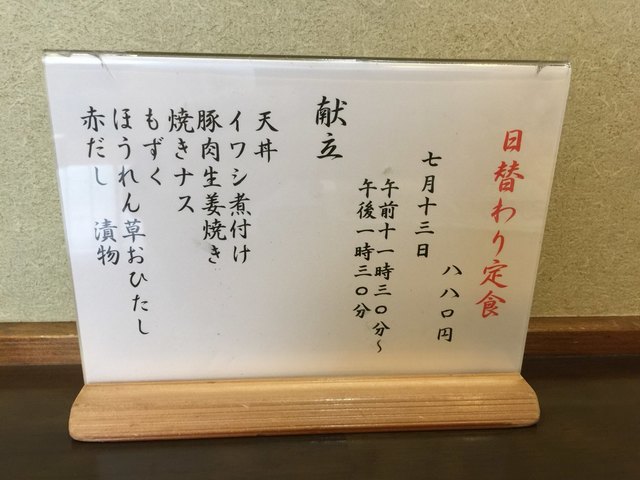 日替わり定食
八八〇円
七月十三日
午前十一時三〇分〜
午後一時三〇分
献立
天丼
イワシ煮付け
豚肉生姜焼き
焼きナス
もずく
ほうれん草おひたし
赤だし 漬物